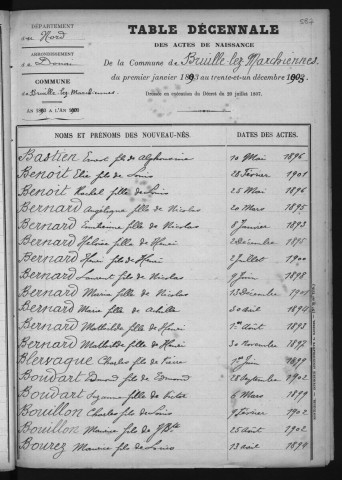 287
DÉPARTEMENT
du Nord
ARRONDISSEMENT
de Douai
COMMUNE
de Bruille lez Marchiennes
AN 1893 A L'AN 1903
TABLE DÉCENNALE
DES ACTES DE NAISSANCE
De la Commune de Bruille lez Marchiennes
du premier janvier 1893 au trente-et-un décembre 1903.
Dressée en exécution du Décret du 20 juillet 1807.
NOMS ET PRÉNOMS DES NOUVEAU-NÉS. DATES DES ACTES.
Bastien fils de 10 Mai 1896
Benoit Elie fils de Louis 28 Février 1901
Benoit Rachel fille de Louis 25 Mai 1896
Bernard Angélique fille de Nicolas 20 Mars 1895
Bernard fille de Nicolas 8 Janvier 1893
Bernard Héloïse fille de Henri 2 Décembre 1895
Bernard Henri fils de Henri 2 Juillet 1900
Bernard Laurent fils de Nicolas 9 Juin 1898
Bernard Maria fille de Nicolas 13 Décembre
Bernard Marie fille de Achille 30 avril 1894
Bernard Mathilde fille de Henri 1er Août 1893
Bernard Mathilde fille de Henri 30 Novembre 1897
Blervaque Charles fils de Pierre 1er Juin 1899
Boudart fils de Edmond 28 Septembre 1902
Boudart Suzanne fille de Victor 6 Mars 1899
Bouillon Charles fils de Louis 9 Février 1902
Bouillon Maurice fils de J Bte 25 Août 1902
Bourez Maurice fils de Louis 13 avril 1899